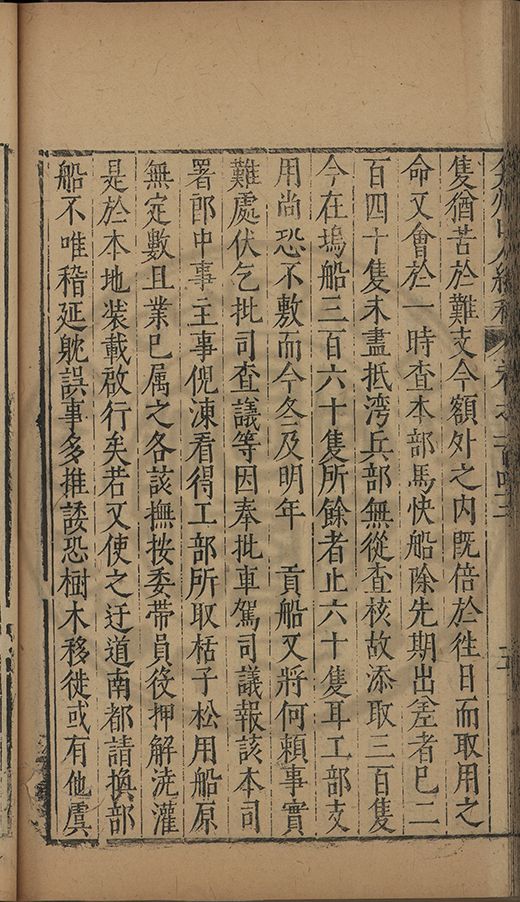 弇州山人續稿 卷之一百四十二 三
隻猶苦於難支今額外之内既倍於徃日而取用之
命又會於一時查本部馬快船除先期出差者已二
百四十隻未盡抵湾兵部無從查核故添取三百隻
今在塢船三百六十隻所餘者止六十隻耳工部支
用尚恐不敷而今冬及明年 貢船又將何頼事實
難處伏乞批司查議等因奉批車駕司議報該本司
署郎中事主事倪涷看得工部所取栝子松用船原
無定數且業已属之各該撫按委帶員役押解浇灌
是於本地装載啟行矣若又使之迂道南都請換部
船不唯稽延躭誤事多推諉恐樹木移徙或有他虞